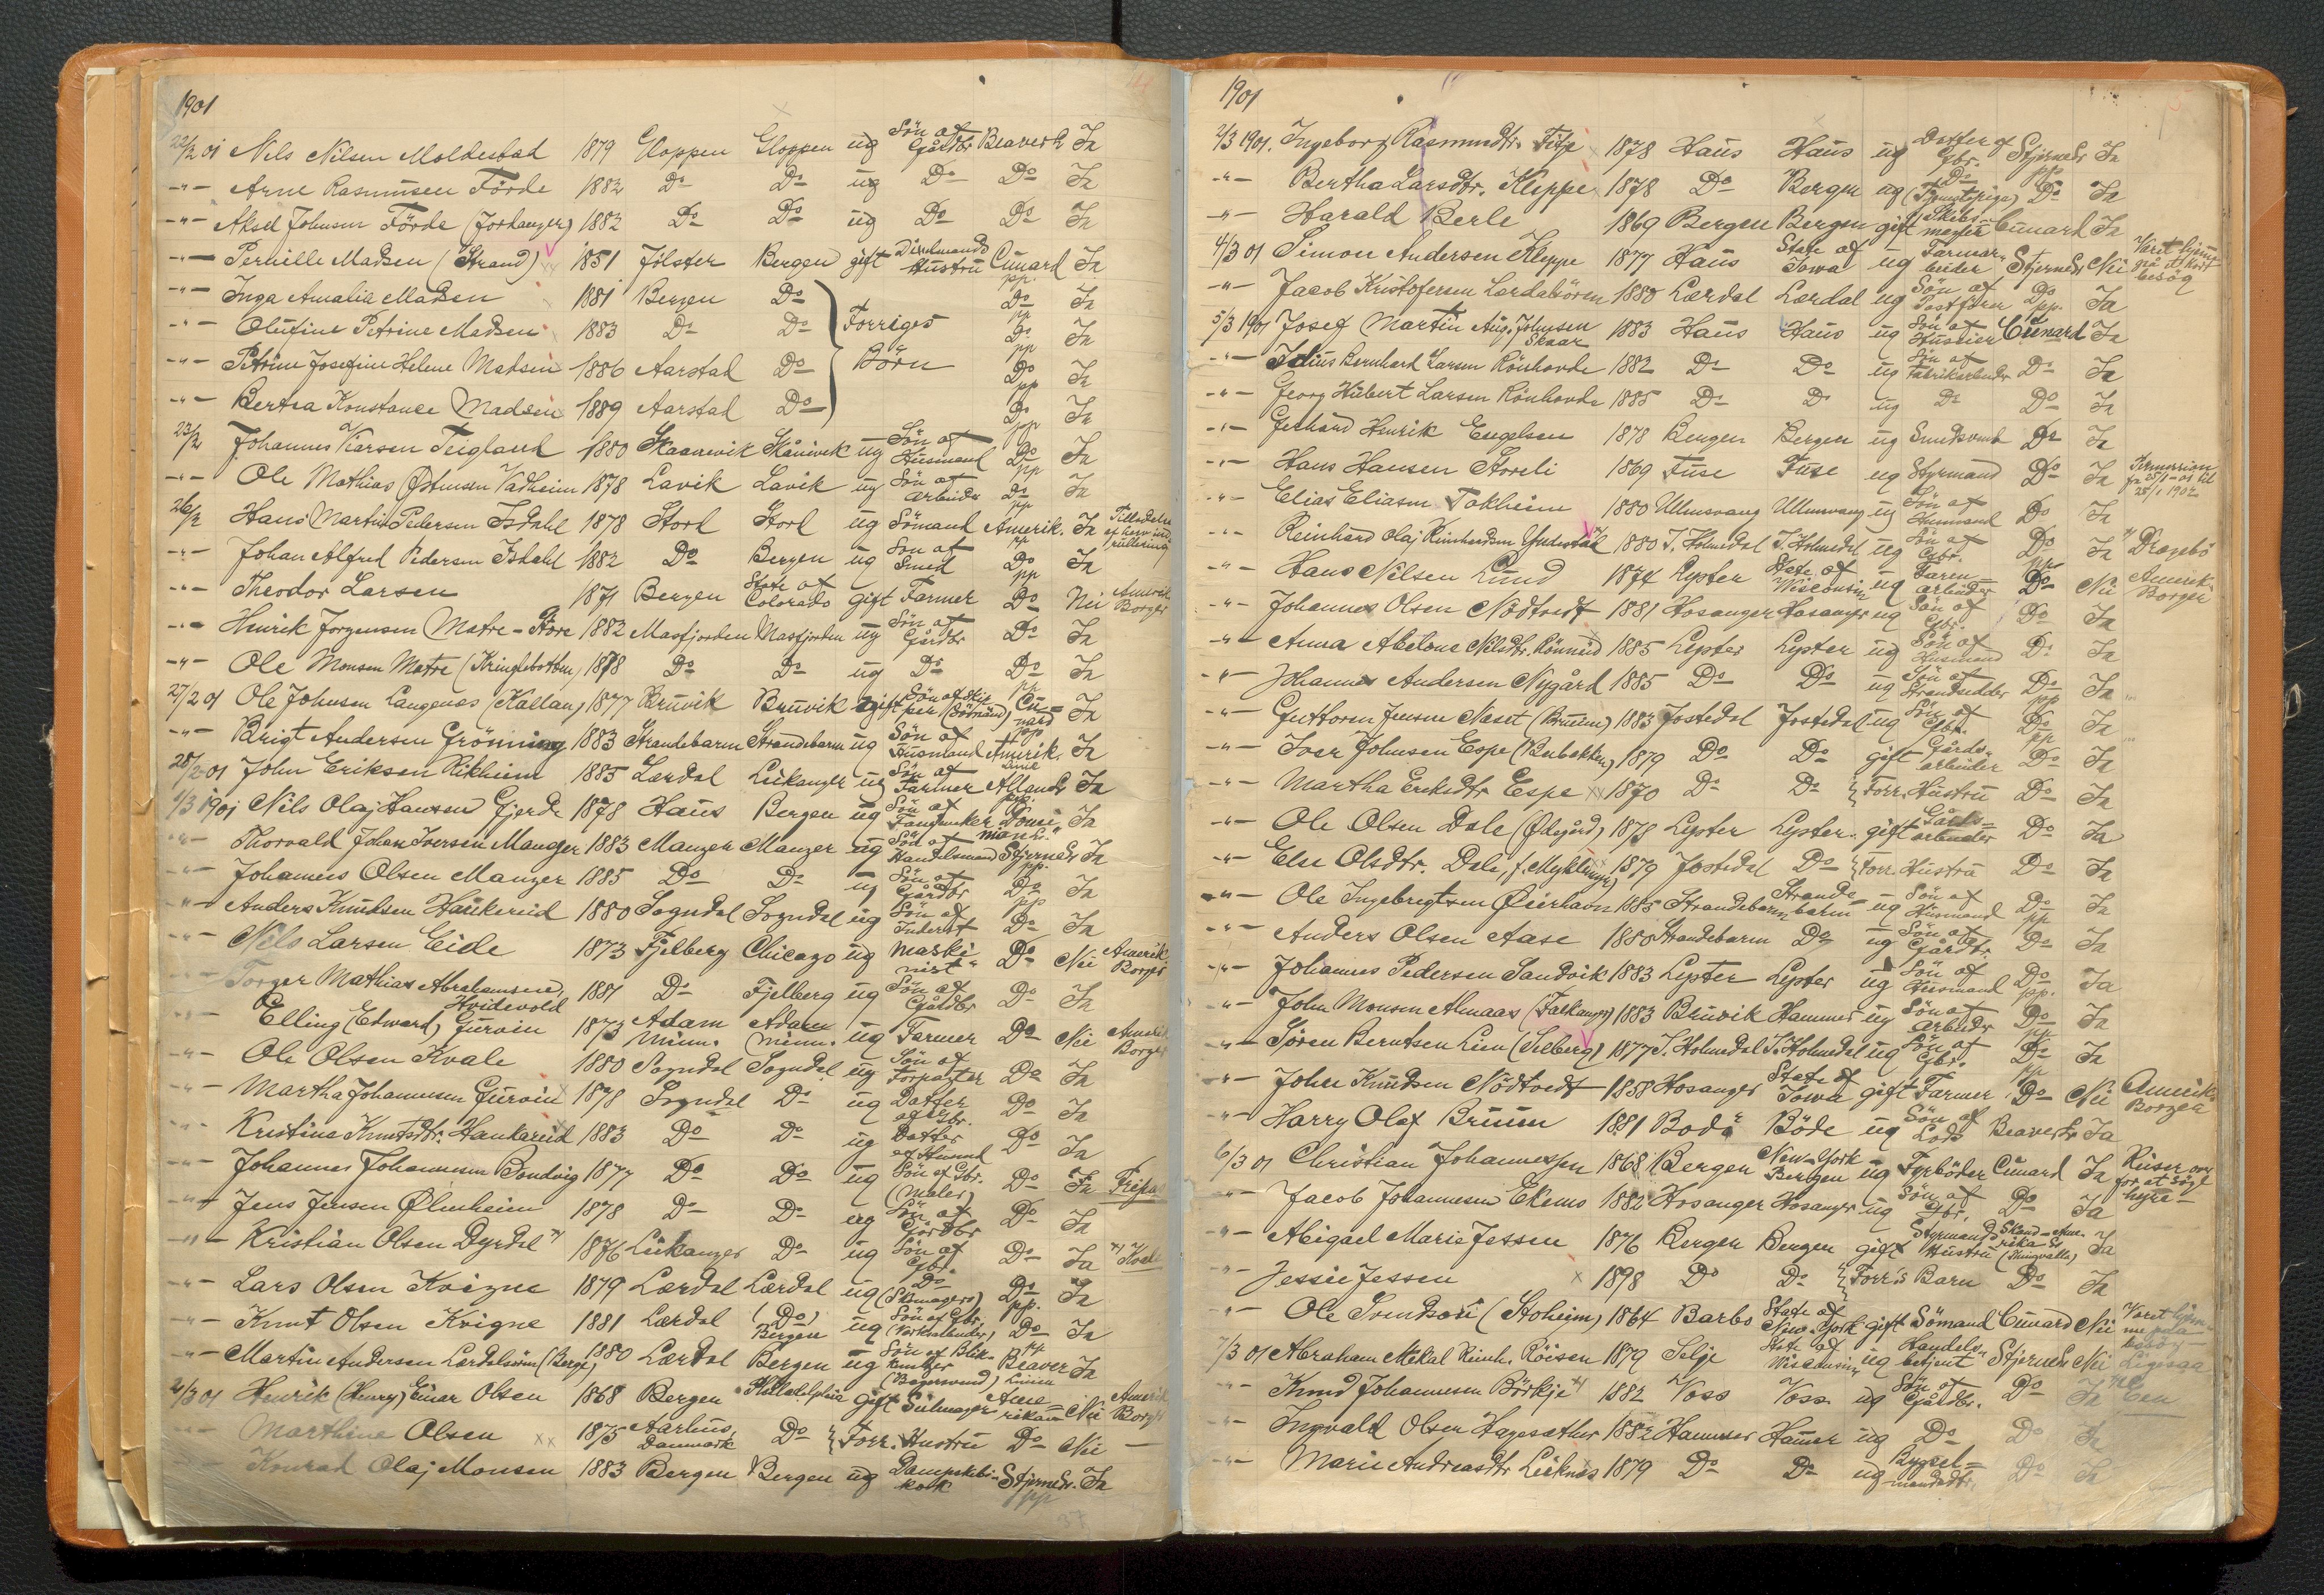 1901
22/2 01 Nils Nilsen Moldestad 1879 Gloppen Gloppen ug Sön af Gårdbr Beaver L Ja
-"- Arne Rasmussen Förde 1882 Do Do ug Do Do Ja
-"- Aksel Johnsen Förde (Forhanger) 1882 Do Do ug Do Do Ja
-"- Pernille Madsen (Strand) 1851 Jölster Bergen gift Hustru Cunard pp. Ja
-"- Inga Amalia Madsen 1881 Bergen Do Forriges Börn Do pp Ja
-"- Olufine Petrine Madsen 1883 Do Do Do pp Ja
-"- Petrine Josefine Helene Madsen 1886 Aarstad Do Do pp Ja
-"- Bertha Konstance Madsen 1889 Aarstad Do Do pp Ja
23/2 Johannes Teigland 1880 Skaanevik Skånevik ug Sön af Husmand Do pp Ja
-"- Ole Mathias Östensen Vadheim 1878 Lavik Lavik ug Sön af arbeider Do pp Ja
26/2 Hans Martin Pedersen Isdahl 1878 Stord Stord ug Sömand Amerik. pp Ja Tilladelse af rullering
-"- Johan Alfred Pedersen Isdahl 1882 Do Bergen ug Sön af Smed Do pp Ja
-"- Theodor Larsen 1871 Bergen State of Colorado gift Farmer Do Nei Amerik. Borger
-"- Henrik Jorgensen Matre-Store 1882 Masfjorden Masfjorden ug Sön af Gårdbr Do Ja
-"- Ole Monsen Matre (Kringlebotten) 1878 Do Do ug Do Do pp Ja
27/2 01 Ole Johnsen Langenes (Kallan) 1877 Bruvik Bruvik gift Sön af (Sömand) Cunard pp Ja
-"- Brigt Andersen Grönning 1883 Strandebarm Strandebarm ug Sön af Husmand Amerik. Line Ja
28/2 01 John Eriksen Rikheim 1885 Lærdal Leikanger ug Sön af Farmer Allan L pp. Ja
1/3 1901 Nils Olaj Hansen Gjerde 1878 Haus Bergen ug Sön af Dominion L Ja
-"- Thorvald Johan Iversen Manger 1883 Manger Manger ug Sön af Handelsmand Stjerne L pp. Ja
-"- Johannes Olsen Manger 1885 Do Do ug Sön af Gårdbr Do pp Ja
-"- Anders Knudsen Haukereid 1880 Sogndal Sogndal ug Sön af Inderst Do Ja
-"- Nils Larsen Eide 1873 Fjelberg Chicago ug Maskinist Do Nei Amerik. Borger
-"- Torger Mathias Abrahamsen Hvidevold 1881 Do Fjelberg ug Sön af Gårdbr Do Ja
-"- Elling (Edward) Gurvin 1873 Adam Minn. Adam Minn. ug Farmer Do Nei Amerik Borger
-"- Ole Olsen Kvale 1880 Sogndal Sogndal ug Sön af Forpagter Do Ja
-"- Martha Johannesen Gurvin 1878 Sogndal Do ug Datter af Gbr. Do Ja
-"- Kristina Knutsdtr. Haukareid 1883 Do Do ug Datter af Husmand Do Ja
-"- Johannes Johannesen Sondvig 1877 Do Do ug Sön af Gbr. (Maler) Do Ja Fripas
-"- Jens Jensen Ölmheim 1878 Do Do ug Sön af Gårdbr Do Ja
-"- Kristian Olsen Dyrdal x) 1876 Leikanger Do ug Sön af Gbr. Do Ja x) Kvale
-"- Lars Olsen Kvigne 1879 Lærdal Lærdal ug Do (Skomager) Do pp. Ja
-"- Knut Olsen Kvigne 1881 Lærdal (Do) Bergen ug Sön af Gbr. Do pp Ja
-"- Martin Andersen Lærdalsören (Berge) 1880 Lærdal Bergen ug Sön af Blikkenslager (Bogerswend) Beaver Linien Ja
2/3 01 Henrik (Henry) Einar Olsen 1868 Bergen Philadelphia gift Seilmager Amerikan Nei Amerik Borger
-"- Marthine Olsen 1875 Aarhus, Danmark Do Forr. Hustru Do Nei —
Konrad Olaj Monsen 1883 Bergen Bergen ug Dampskibskok Stjerne L. pp Ja
1901
2/3 1901. Ingeborg Rasmundtr. Titje 1878 Haus Haus ug Datter af Gbr. Stjerne L pp Ja
-"- Bertha Larsdtr. Kleppe 1878 Do Bergen ug Do (Tjenestepige) Do Ja
-"- Harald Berle 1869 Bergen Bergen gift Skibsmægler Cunard Ja
4/3 01 Simon Andersen Kleppe 1877 Haus State of Iowa ug Farmarbeider Stjerne L Nei Været hjemme på et kort besög
-"- Jacob Kristofersen Lærdalsören 1880 Lærdal Lærdal ug Sön af Postförer Do pp. Ja
5/3 1901 Josef Martin Aug. Johnsen Skaar 1883 Haus Haus ug Sön af Huseier Cunard Ja
-"- Julius Bernhard Larsen Rönhovde 1882 Do Do ug Sön af Fabrikarbeider Do Ja
-"- Georg Hubert Larsen Rönhovde 1885 Do Do ug Do Do Ja
-"- Gerhard Henrik Engelsen 1878 Bergen Bergen ug Do Ja
-"- Hans Hansen Storeli 1869 Fuse Fuse ug Styrmand Do Ja Permission fra 25/1-01 til 25/1 1902
-"- Elias Eliasen Tokheim 1880 Ullensvang Ullensvang ug Sön af Husmand Do Ja
-"- Reinhard Olaj Reinhardsen Yndestad x) 1880 I. Holmedal I. Holmedal ug Sön af Gbr. Do pp Ja x) Dragebö
-"- Hans Nilsen Lund 1874 Lyster State of Wisconsin ug Farmarbeider Do Nei Amerik. Borger
-"- Johannes Olsen Nödtvedt 1881 Hosanger Hosanger ug Sön af Gbr. Do Ja
-"- Anna Abelone Nilsdtr. Rönneid 1885 Lyster Lyster ug Sön af Husmand Do Ja
-"- Johannes Andersen Nygård 1885 Do Do ug Sön af Strandsidder Do pp Ja
-"- Guttorm Jensen Næset (Bruum) 1883 Jostedal Jostedal ug Sön af Gbr. Do pp Ja
-"- Iver Johnsen Espe (Bubakken) 1879 Do Do gift Gårdsarbeider Do Ja
-"- Martha Eriksdtr Espe 1870 Do Do Forr. Hustru Do Ja
-"- Ole Olsen Dale (Ödegård) 1878 Lyster Lyster gift Gårdsarbeider Do Ja
-"- Else Olsdtr. Dale, f. Myklemyr 1879 Jostedal Do Forr. Hustru Do Ja
-"- Ole Ingebregtsen Öierhavn 1885 Strandebarm Strandebarm ug Sön af Husmand Do pp Ja
-"- Anders Olsen Aase 1880 Strandebarm Do ug Sön af Gårdbr. Do Ja
-"- Johannes Pedersen Sandvik 1883 Lyster Lyster ug Sön af Husmand Do pp. Ja
-"- John Monsen Almaas (Falkanger) 1883 Bruvik Hammer ug Sön af arbeider Do pp Ja
-"- Sören Berntsen Lien (Selberg) 1877 I. Holmedal I. Holmedal ug Sön af Gbr. Do pp Ja
-"- John Knudsen Nödtvedt 1858 Hosanger State of Iowa gift Farmer Do Nei Amerik. Borger
-"- Harry Olaf Bruun 1881 Bodö Bodö ug Sön af Lods Beaver L Ja
6/3 01 Christian Johannessen 1868 Bergen New-York Bergen ug Fyrböder Cunard Ja Reiser over for at söge hyre
-"- Jacob Johannesen Ekemo 1882 Hosanger Hosanger ug Sön af Gbr. Do Ja
-"- Abigael Marie Jessen 1876 Bergen Bergen gift Styrmands Hustru Skand-Amerika L (Thingvalla) Ja
-"- Jessie Jessen 1898 Do Do Forr's Barn Do Ja
-"- Ole Svendsen (Stoheim) 1864 Barbo State of New-York gift Sömand Cunard Nei Været hjemme paa besög
7/3 01 Abraham Mekal Reinh. Röisen 1879 Selje State of Wisconsin ug Handelsbetjent Stjerne L Nei Ligesaa
-"- Knud Johannesen Börkje x) 1882 Voss Voss ug Sön af Gårdbr. Do Ja
-"- Ingvald Olsen Hagesæther 1882 Hammer Hamer ug Do Do Ja
-"- Marie Andreasdtr Leiknes 1879 Do Do ug Bygselmandsdtr. Do Ja